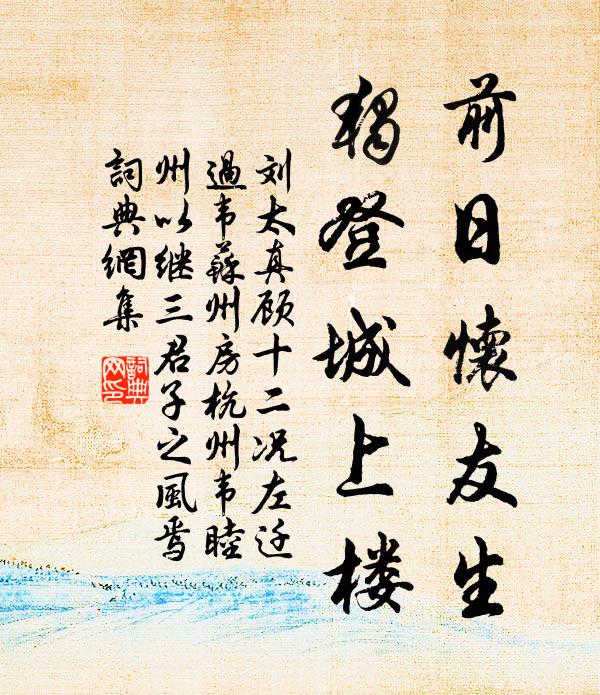 前日懷友生
獨登城上楼
刘太真顾十二况左迁
過韦蘇州房杭州韦睦
州以继三君子之風焉
詞典網集
詞典
网印